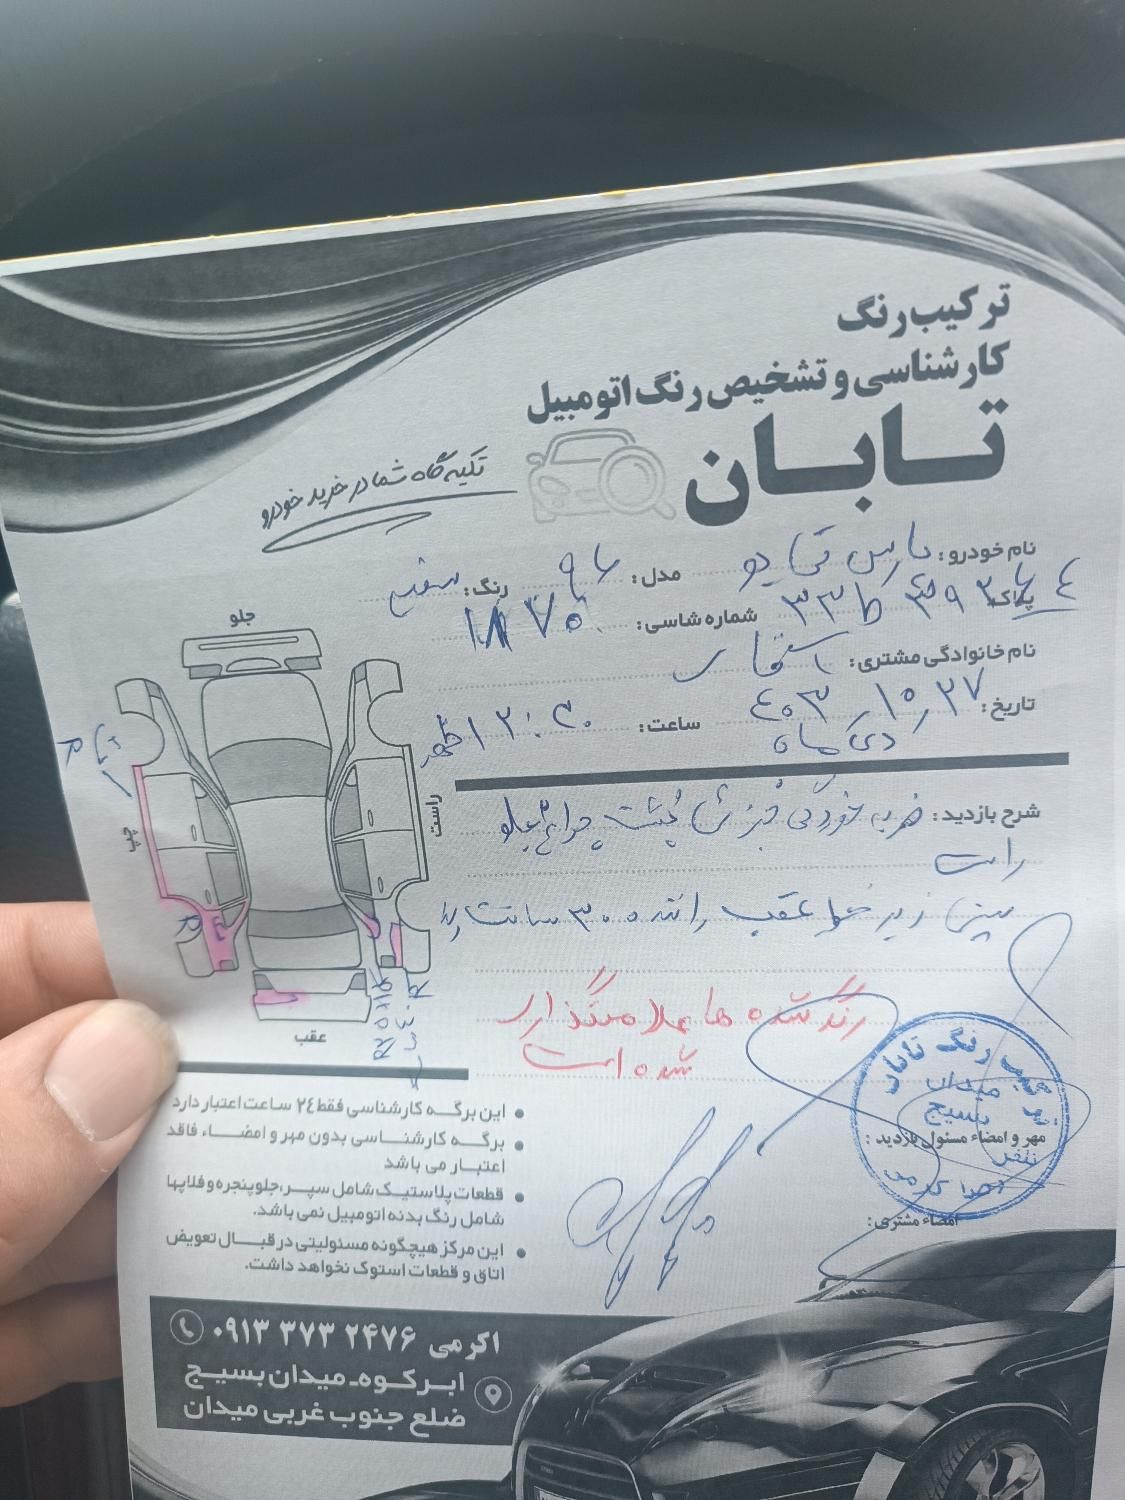 ترکیب رنگ
کارشناسی و تشخیص رنگ اتومبیل
تابان
تکیه گاه شما در خرید خودرو
نام خودرو: پارس تی یو مدل: ۹۶ رنگ: سفید
پلاک: شماره شاسی:
نام خانوادگی مشتری:
تاریخ: ۴۰۳/۱۰/۲۷ ساعت: ۱۲:۳۰ ظهر
دی ماه
شرح بازدید: ضربه خوردگی پشت چراغ جلو
راست
زیر عقب راننده ۳۰ سانت
رنگ شده ها علامتگذاری
شده است
جلو
راست
چپ
عقب
میدان
بسیج
مهر و امضاء مسئول بازدید:
امضاء مشتری:
این برگه کارشناسی فقط ۲۴ ساعت اعتبار دارد
برگه کارشناسی بدون مهر و امضاء فاقد
اعتبار می باشد
قطعات پلاستیک شامل سپر، جلوپنجره و فلاپها
شامل رنگ بدنه اتومبیل نمی باشد.
این مرکز هیچگونه مسئولیتی در قبال تعویض
اتاق و قطعات استوک نخواهد داشت.
اکرمی ۰۹۱۳ ۳۷۳ ۲۴۷۶
ابرکوه-میدان بسیج
ضلع جنوب غربی میدان